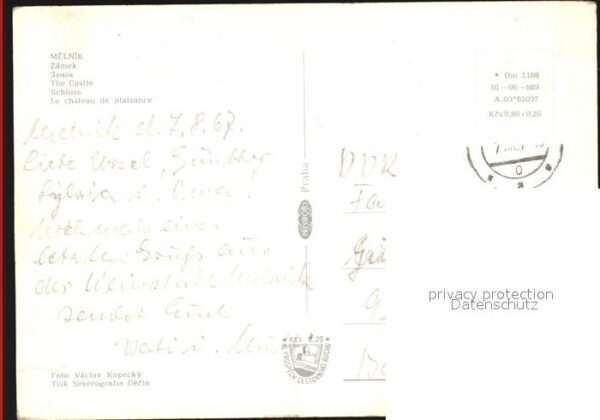 MĚLNÍK
Zámek
Замок
The Castle
Schloss
Le château de plaisance
Melnik d. 7.8.67.
Liebe Ursel, Günther
Sylvia u. Oma!
Noch mals einen
letzten Gruß aus
der Weinstadt Melnik
sendet Euch
Vati u.
Praha
PRESSFOTO
* Om 1186
01-06-669
A-03*61097
Kčs 0,80+0,20
DDR
Fa
privacy protection
Datenschutz
* Kčs 0,20 *
Foto Václav Kopecký
Tisk Severografia Děčín